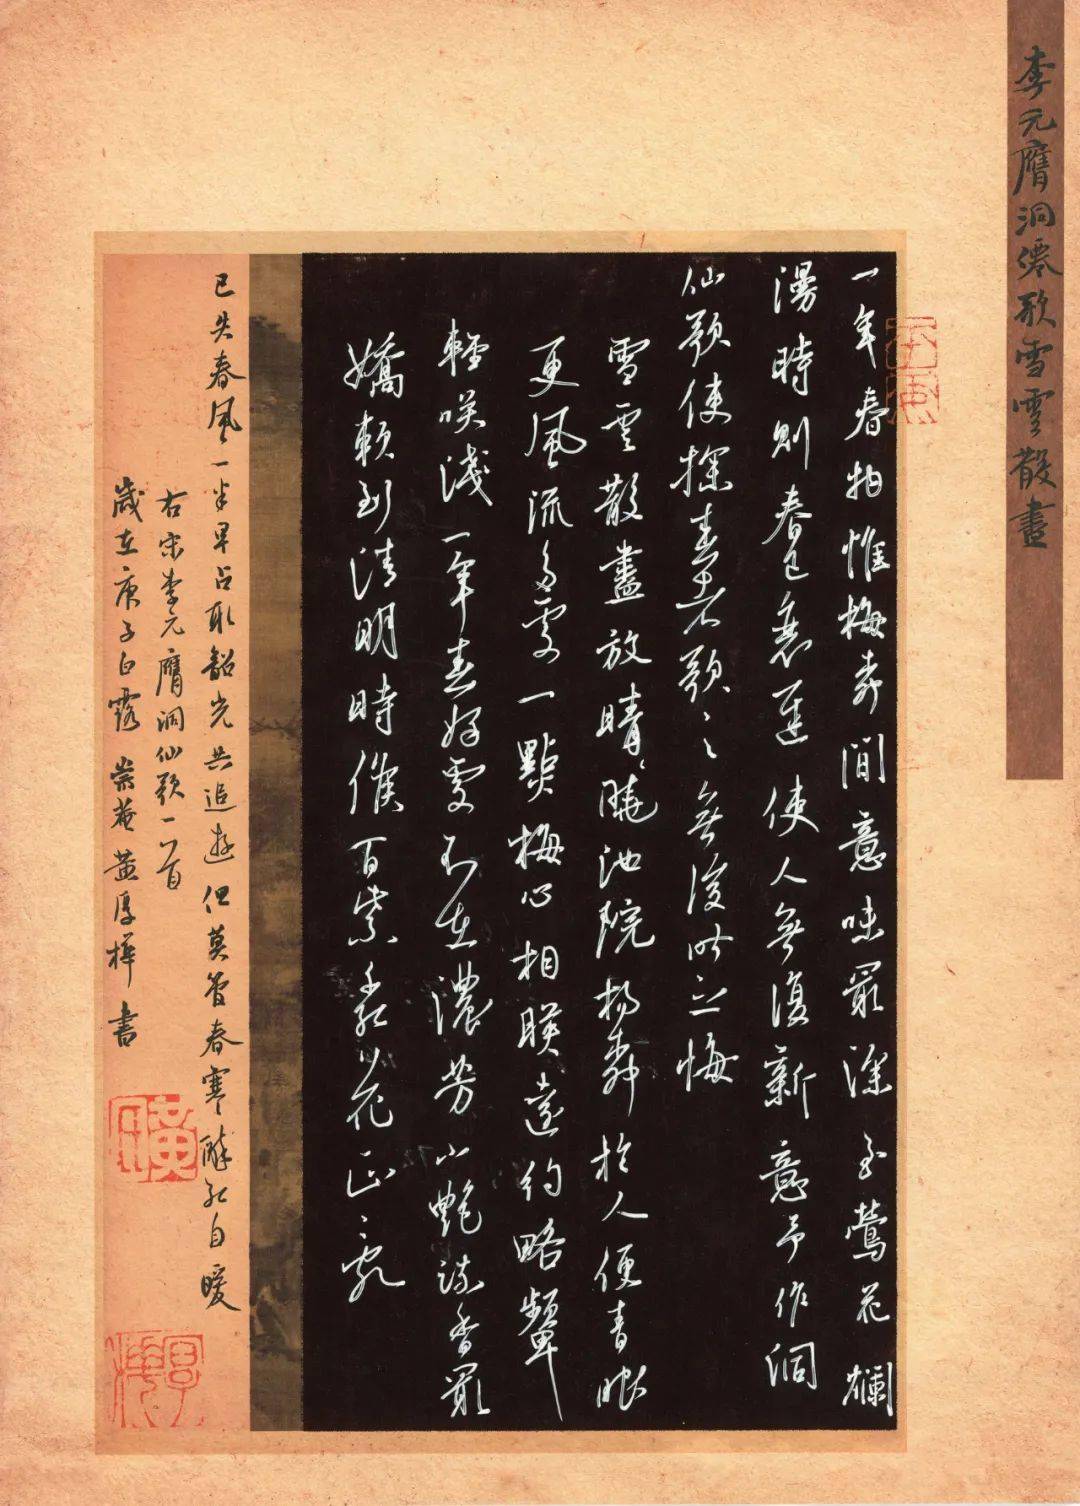 李元膺洞僊歌雪雲散盡
一年春物惟梅柳間意味最深至鶯花爛
漫時則春已衰遲使人無復新意予作洞
仙歌使探春者歌之無後時之悔
雪雲散盡放晴曉池院楊柳於人便青眼
更風流多處一點梅心相映遠約略顰
輕笑淺一年春好處不在濃芳小艷疏香最
嬌軟到清明時候百紫千紅花正亂
已失春風一半早占取韶光共追遊但莫管春寒醉紅自暖
右宋李元膺洞仙歌一首
歲在庚子白露 崇庵黃厚樺書